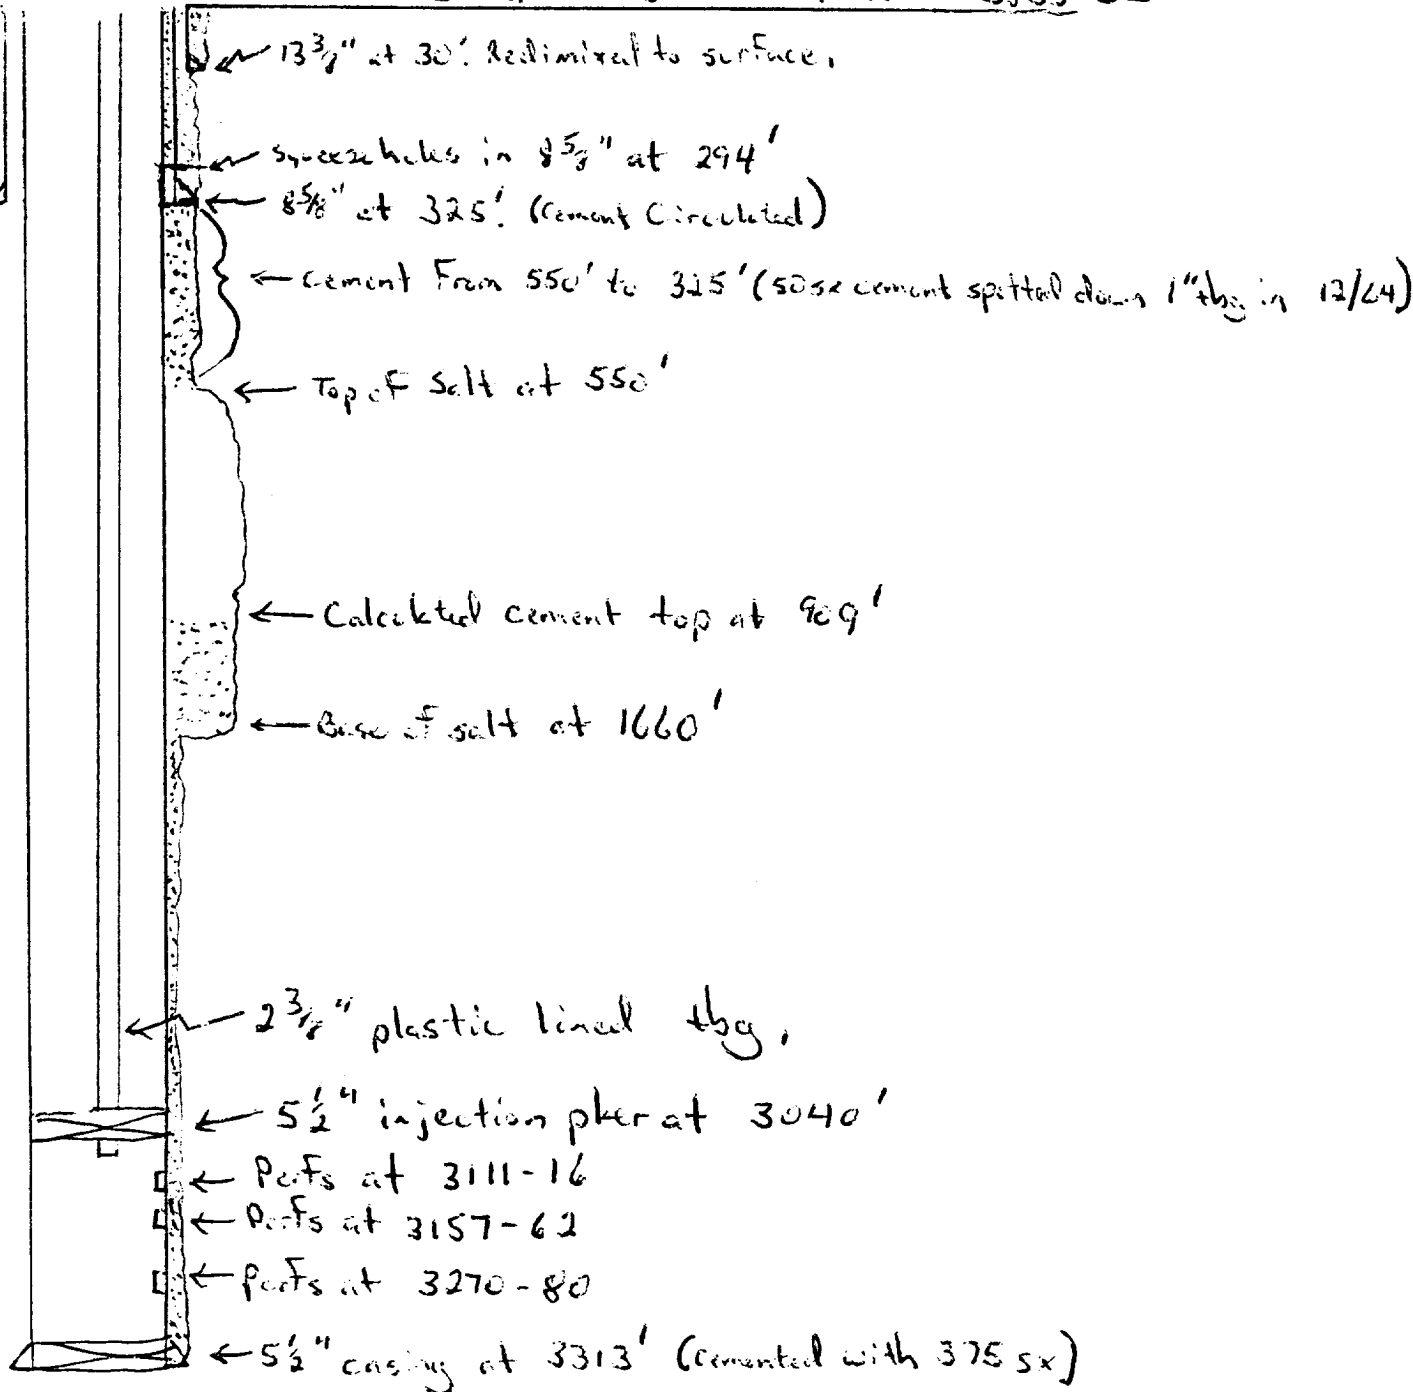 13 3/8" at 30'. Redimixed to surface.
squeeze holes in 8 5/8" at 294'
8 5/8" at 325'. (Cement Circulated)
cement From 550' to 325' (50sx cement spotted down 1" tbg in 12/64)
Top of Salt at 550'
Calculated cement top at 909'
Base of salt at 1660'
2 3/8" plastic lined tbg.
5 1/2" injection pker at 3040'
Perfs at 3111-16
Perfs at 3157-62
Perfs at 3270-80
5 1/2" casing at 3313' (cemented with 375 sx)